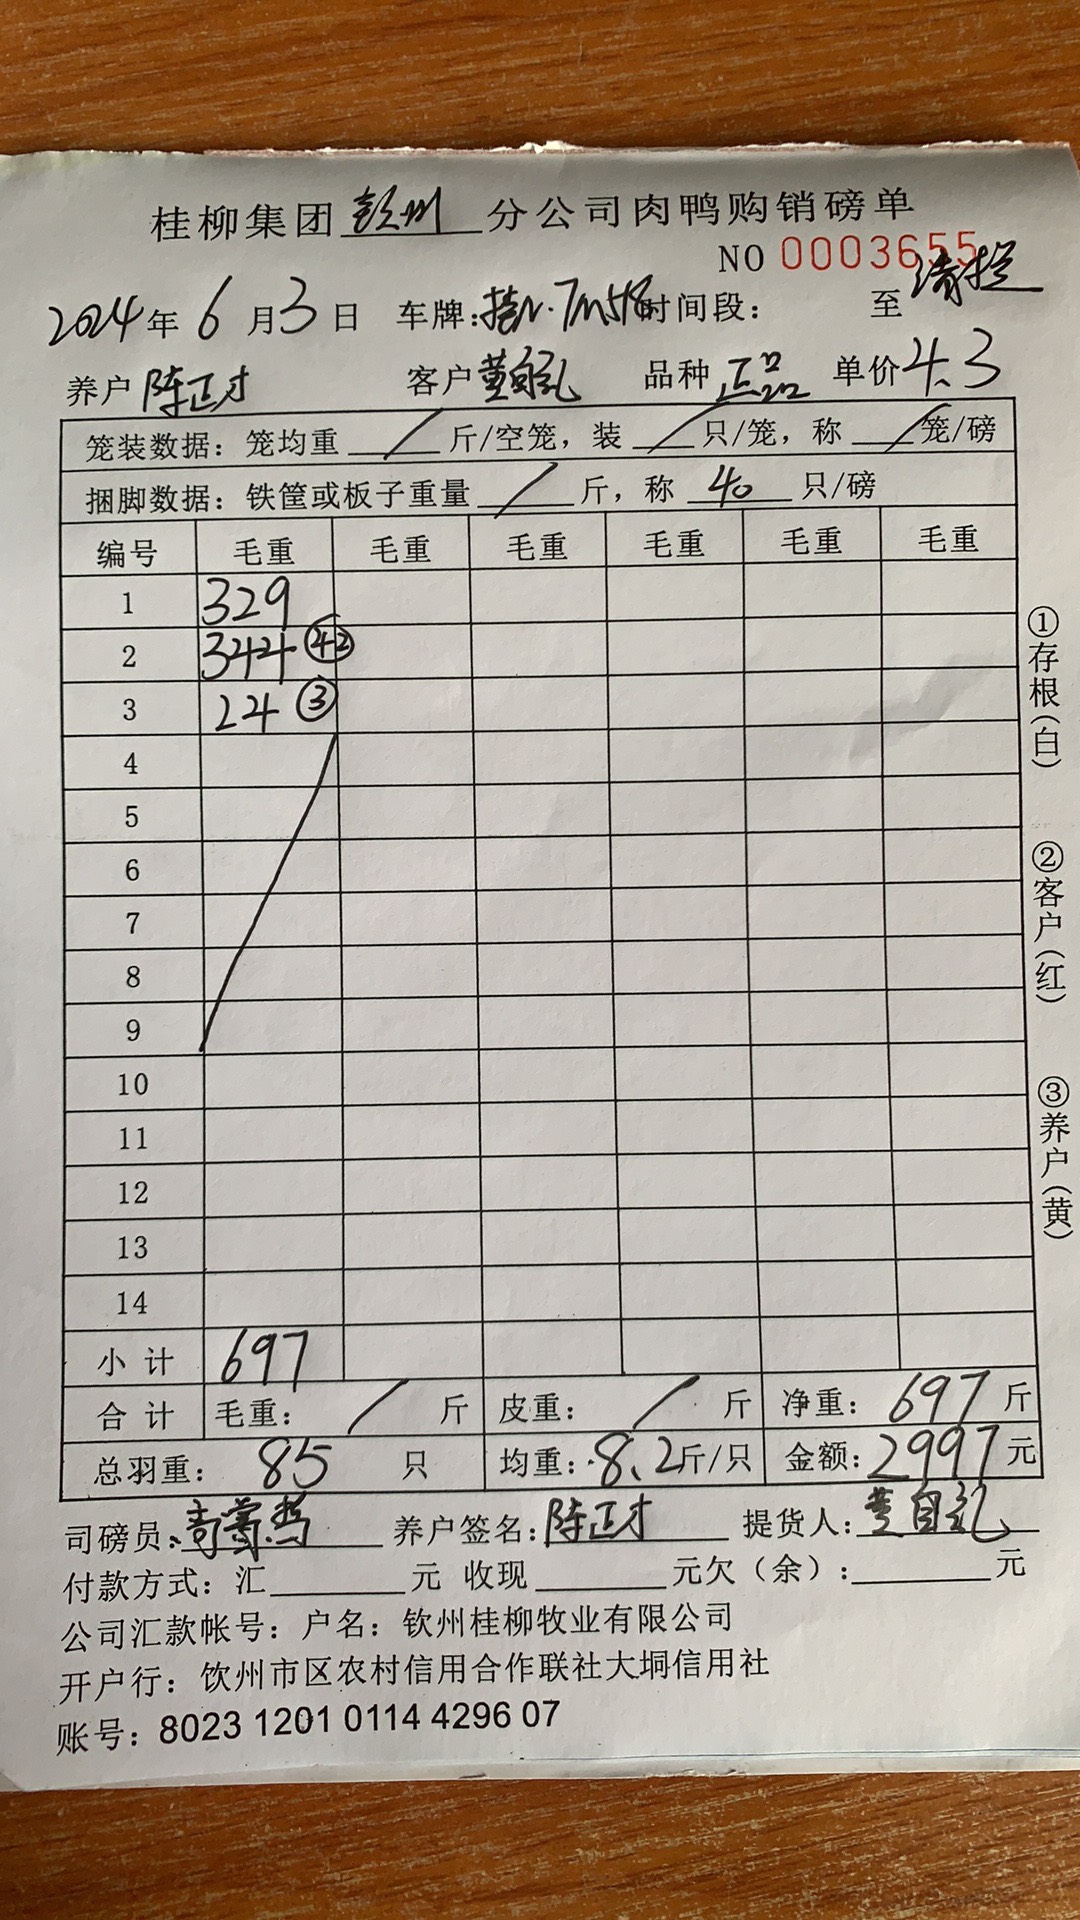 桂柳集团 钦州 分公司肉鸭购销磅单
NO 0003655
2024年6月3日 车牌: 7m518 时间段: 至 清栏
养户 陈正才 客户 黄自礼 品种 正品 单价 4.3
笼装数据: 笼均重 / 斤/空笼, 装 / 只/笼, 称 / 笼/磅
捆脚数据: 铁筐或板子重量 / 斤, 称 40 只/磅
编号 毛重 毛重 毛重 毛重 毛重 毛重
1 329
2 344 ㊷
3 24 ③
4
5
6
7
8
9
10
11
12
13
14
小计 697
合计 毛重: / 斤 皮重: / 斤 净重: 697 斤
总羽重: 85 只 均重: 8.2 斤/只 金额: 2997 元
司磅员: 养户签名: 陈正才 提货人: 黄自礼
付款方式: 汇 元 收现 元欠(余): 元
公司汇款帐号: 户名: 钦州桂柳牧业有限公司
开户行: 钦州市区农村信用合作联社大垌信用社
账号: 8023 1201 0114 4296 07
①存根(白)
②客户(红)
③养户(黄)